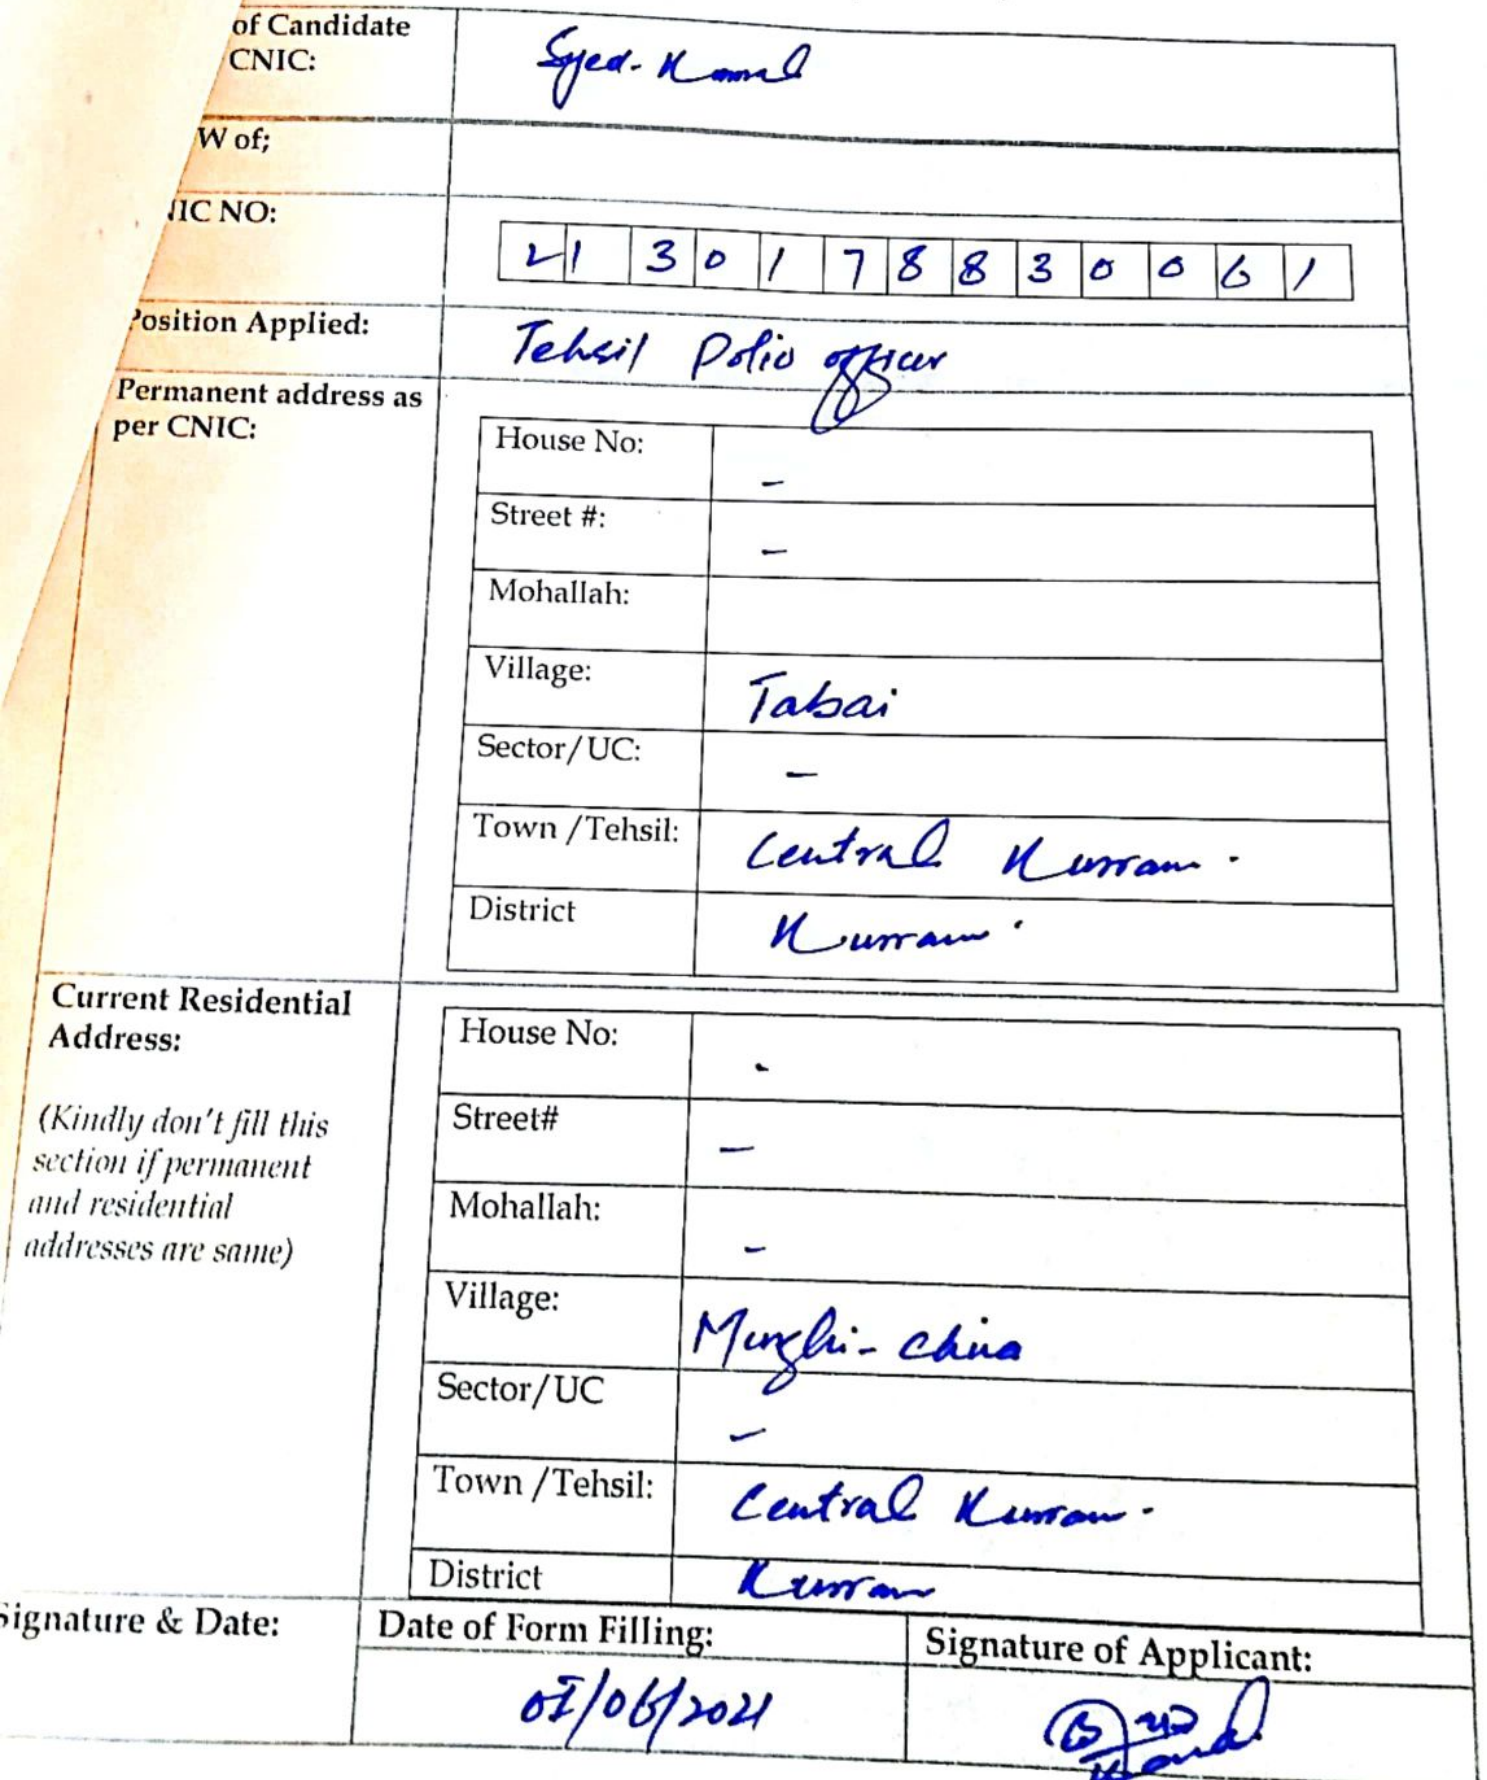 of Candidate
CNIC:
Syed. Kamal
W of;
NIC NO:
21 3 0 1 7 8 8 3 0 0 6 1
Position Applied:
Tehsil Polio officer
Permanent address as
per CNIC:
House No:
-
Street #:
-
Mohallah:
Village:
Tabai
Sector/UC:
-
Town /Tehsil:
Central Kurram.
District
Kurram.
Current Residential
Address:
(Kindly don't fill this
section if permanent
and residential
addresses are same)
House No:
-
Street#
-
Mohallah:
-
Village:
Murghi-China
Sector/UC
-
Town /Tehsil:
Central Kurram.
District
Kurram
Signature & Date:
Date of Form Filling:
/06/2021
Signature of Applicant: